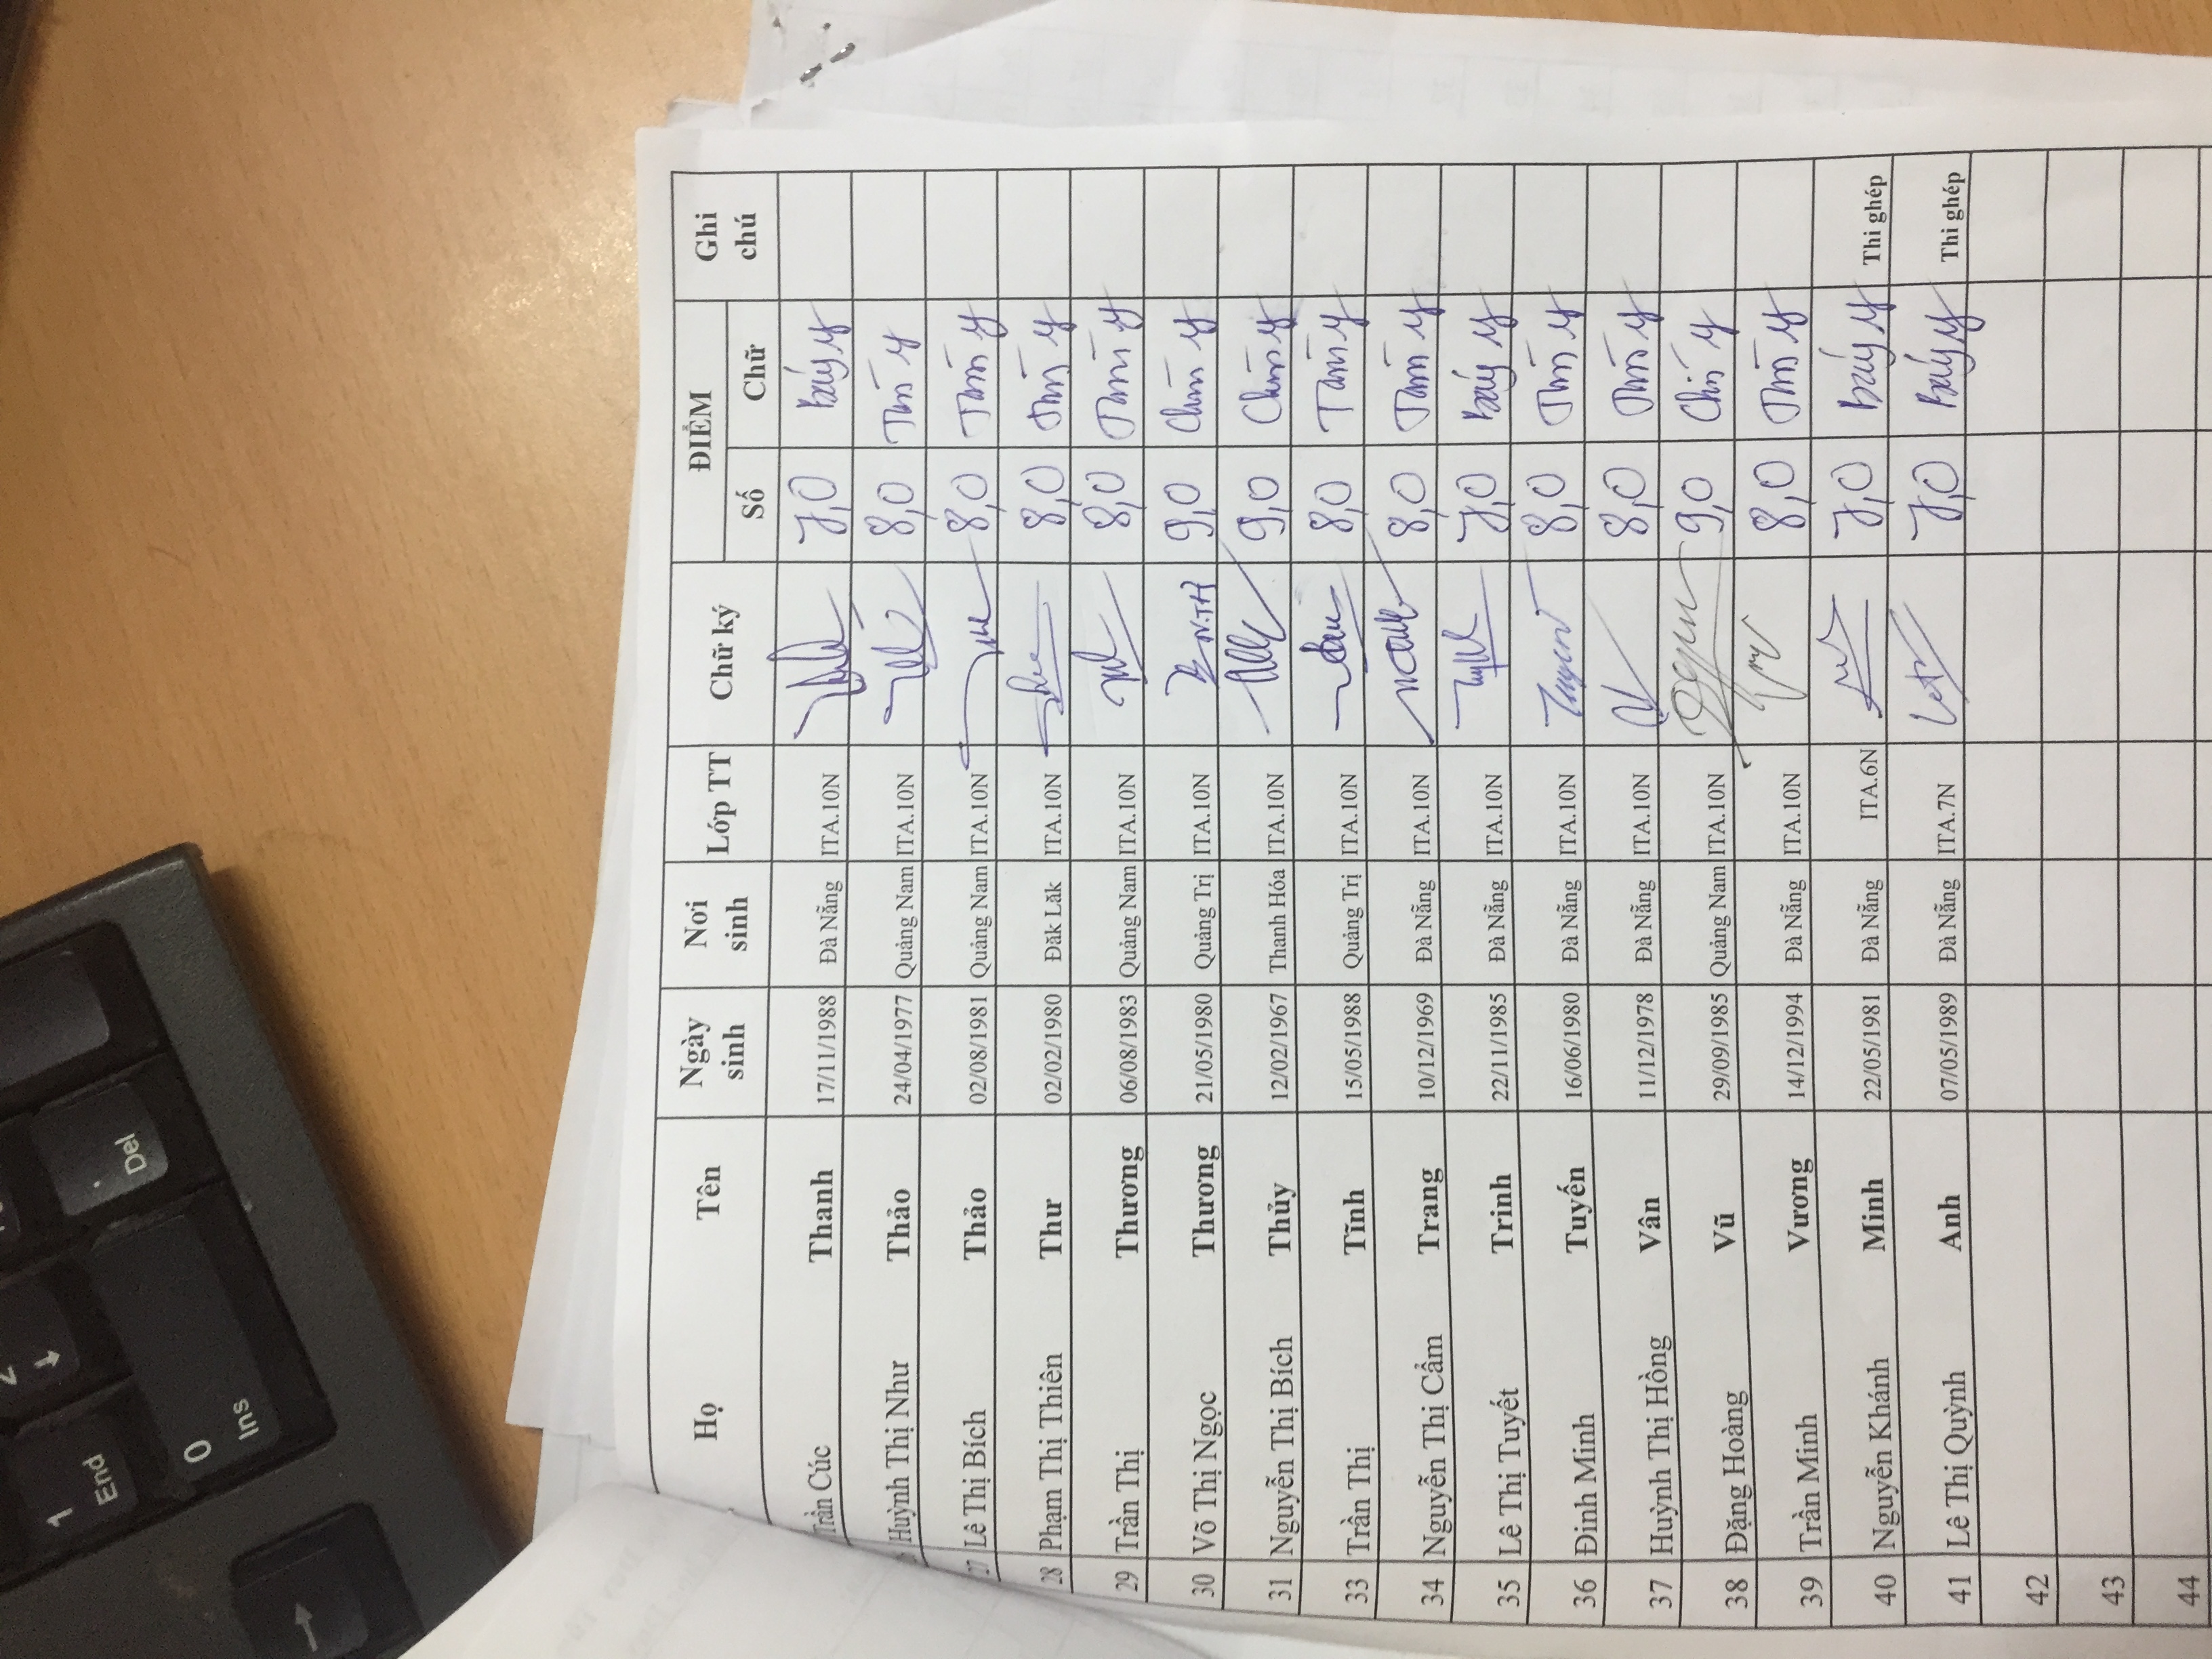 Họ Tên Ngày sinh Nơi sinh Lớp TT Chữ ký ĐIỂM Ghi chú
Số Chữ
Trần Cúc Thanh 17/11/1988 Đà Nẵng ITA.10N 7,0 Bảy y
Huỳnh Thị Như Thảo 24/04/1977 Quảng Nam ITA.10N 8,0 Tám y
27 Lê Thị Bích Thảo 02/08/1981 Quảng Nam ITA.10N 8,0 Tám y
28 Phạm Thị Thiên Thư 02/02/1980 Đăk Lăk ITA.10N 8,0 Tám y
29 Trần Thị Thương 06/08/1983 Quảng Nam ITA.10N 8,0 Tám y
30 Võ Thị Ngọc Thương 21/05/1980 Quảng Trị ITA.10N 9,0 Chín y
31 Nguyễn Thị Bích Thủy 12/02/1967 Thanh Hóa ITA.10N 9,0 Chín y
33 Trần Thị Tĩnh 15/05/1988 Quảng Trị ITA.10N 8,0 Tám y
34 Nguyễn Thị Cẩm Trang 10/12/1969 Đà Nẵng ITA.10N 8,0 Tám y
35 Lê Thị Tuyết Trinh 22/11/1985 Đà Nẵng ITA.10N 7,0 Bảy y
36 Đinh Minh Tuyến 16/06/1980 Đà Nẵng ITA.10N 8,0 Tám y
37 Huỳnh Thị Hồng Vân 11/12/1978 Đà Nẵng ITA.10N 8,0 Tám y
38 Đặng Hoàng Vũ 29/09/1985 Quảng Nam ITA.10N 9,0 Chín y
39 Trần Minh Vương 14/12/1994 Đà Nẵng ITA.10N 8,0 Tám y
40 Nguyễn Khánh Minh 22/05/1981 Đà Nẵng ITA.6N 7,0 Bảy y Thi ghép
41 Lê Thị Quỳnh Anh 07/05/1989 Đà Nẵng ITA.7N 7,0 Bảy y Thi ghép
42
43
44
Del
0
Ins
1
End